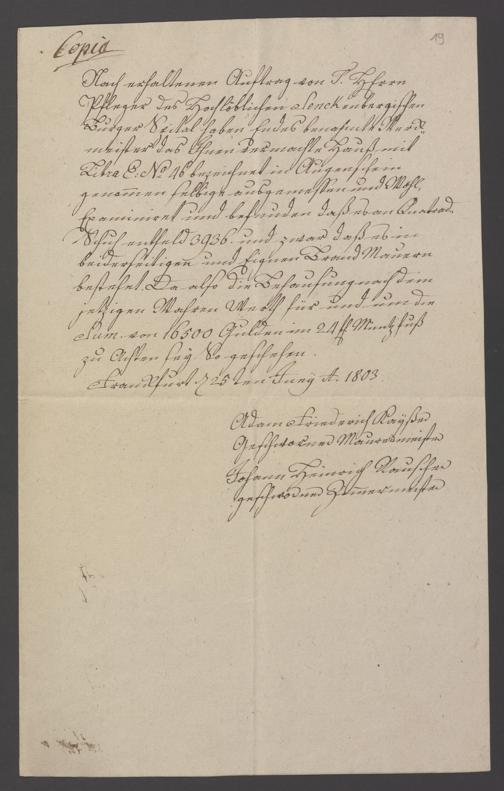 Copia
19
Nach erhaltenen Auftrag von T. Herrn
Pfleger des Hochlöblichen Senckenbergischen
Burger Spital haben Endes benahmte Werck-
meister das Ihnen vermachte Hauß mit
Litra E: No 46 bezeichnet in Augenschein
genommen selbige ausgemessen und Wohl
Examiniret und befunden daß es an Quatrad
Schuh entheld 3936 und zwar daß es in
beiderseitigen und Eignen Brand Mauern
bestehet. Da also die Behausung nach dem
jetzigen Wahren Werth für und um die
Sum. von 16500 Gulden im 24 fl Muntz fuß
zu Achten sey So geschehen.
Franckfurt d 25ten Juny A. 1803.
Adam Friederich Kayßer
Geschworner Maurermeister
Johann Heinrich Rauscher
geschworner Zimmermeister